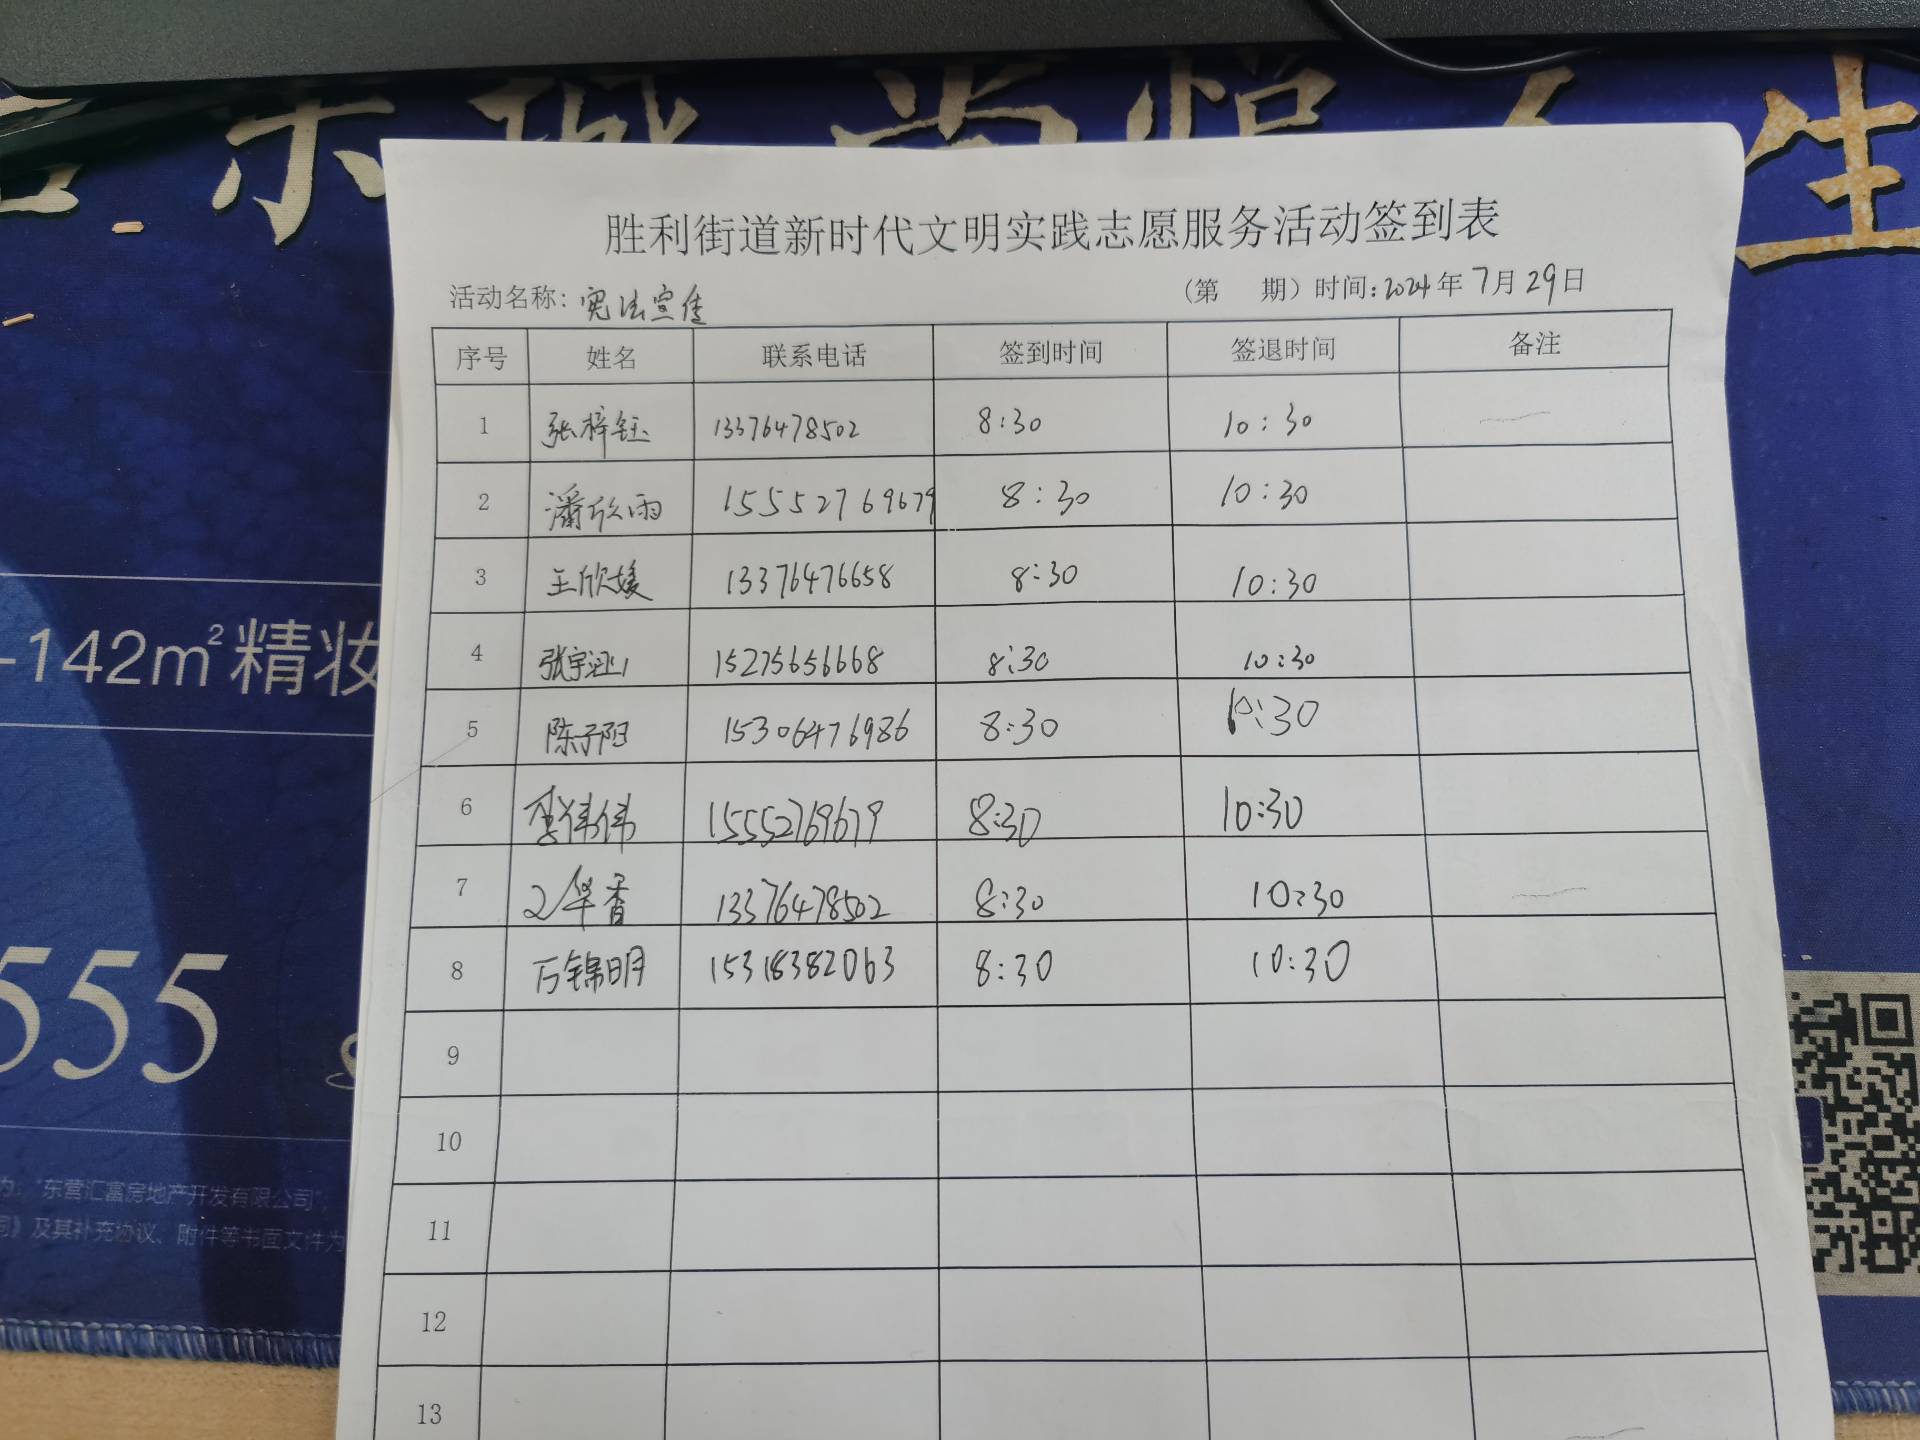 东城尚悟人生
胜利街道新时代文明实践志愿服务活动签到表
活动名称：宪法宣传 （第 期）时间：2024年7月29日
序号 姓名 联系电话 签到时间 签退时间 备注
1 张梓钰 13376478502 8:30 10:30
2 潘欣雨 15552769679 8:30 10:30
3 王欣媛 13376476658 8:30 10:30
4 张宇 15275656668 8:30 10:30
5 陈子阳 15306476986 8:30 10:30
6 李伟伟 15552769679 8:30 10:30
7 华香 13376478502 8:30 10:30
8 万锦明 15318382063 8:30 10:30
9
10
11
12
13
-142m²精妆
555
为："东营汇富房地产开发有限公司"；
同》及其补充协议、附件等书面文件为